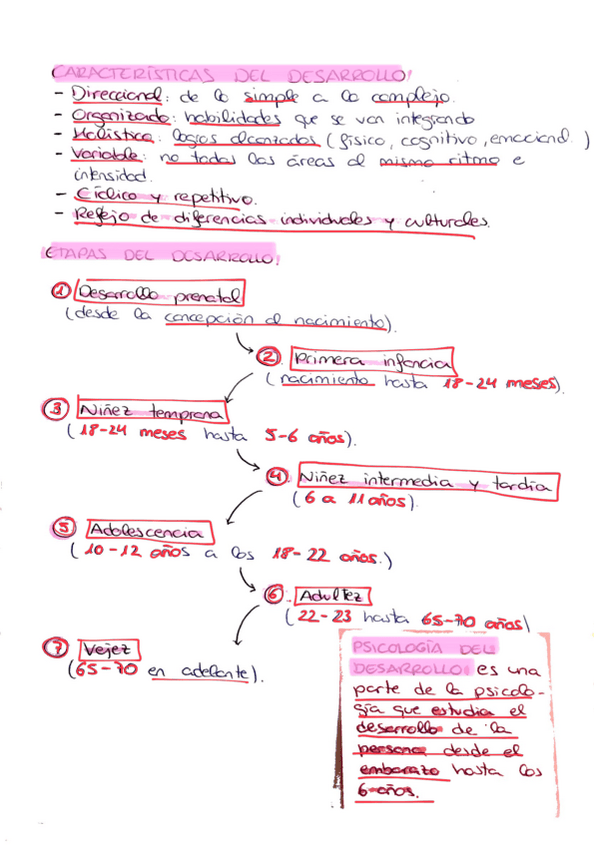 CARACTERÍSTICAS DEL DESARROLLO:
- Direccional: de lo simple a lo complejo.
- Organizado: habilidades que se van integrando
- Holística: logros alcanzados (físico, cognitivo, emocional.)
- Variable: no todas las áreas al mismo ritmo e
intensidad.
- Cíclico y repetitivo.
- Reflejo de diferencias individuales y culturales.
ETAPAS DEL DESARROLLO:
1 Desarrollo prenatal
(desde la concepción al nacimiento).
2 Primera infancia
(nacimiento hasta 18-24 meses).
3 Niñez temprana
(18-24 meses hasta 5-6 años).
4 Niñez intermedia y tardía
(6 a 11 años).
5 Adolescencia
(10-12 años a los 18-22 años.)
6 Adultez
(22-23 hasta 65-70 años)
7 Vejez
(65-70 en adelante).
PSICOLOGÍA DEL
DESARROLLO: es una
parte de la psicolo-
gía que estudia el
desarrollo de la
persona desde el
embarazo hasta los
6 años.